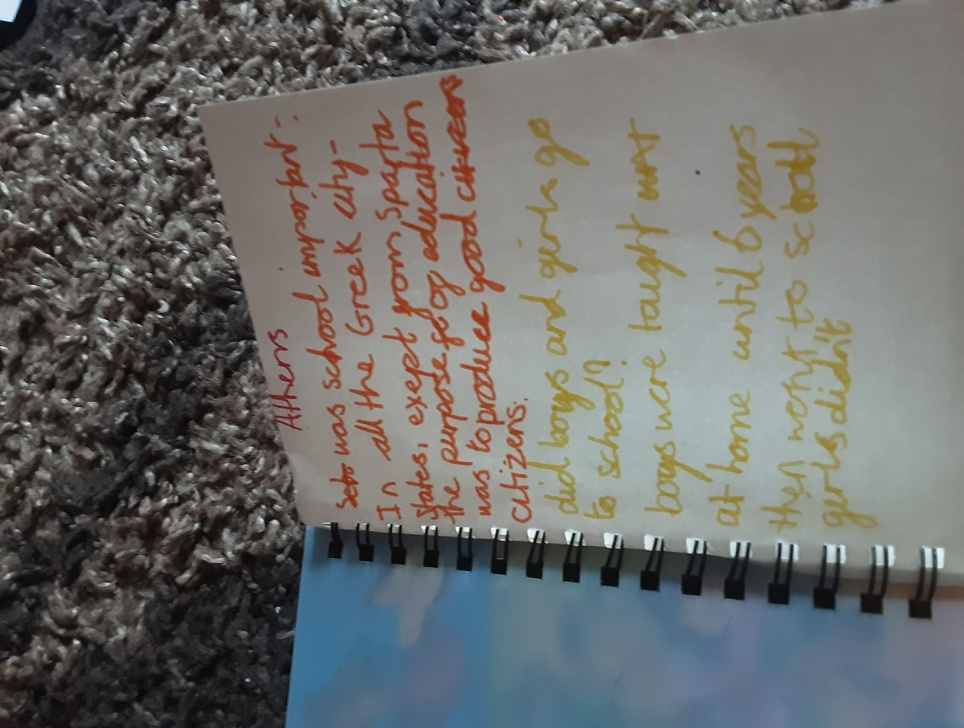 Athens
was school important:
In all the Greek city-
states, except from Sparta
the purpose of education
was to produce good citizens
citizens.
did boys and girls go
to school?
boys were taught
at home until 6 years
then went to school
girls didn't